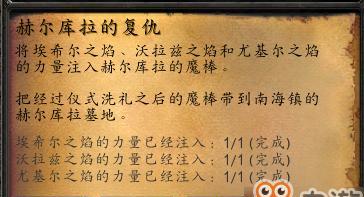 赫尔库拉的复仇
将埃希尔之焰、沃拉兹之焰和尤基尔之焰
的力量注入赫尔库拉的魔棒。
把经过仪式洗礼之后的魔棒带到南海镇的
赫尔库拉墓地。
埃希尔之焰的力量已经注入：1/1 (完成)
沃拉兹之焰的力量已经注入：1/1 (完成)
尤基尔之焰的力量已经注入：1/1 (完成)